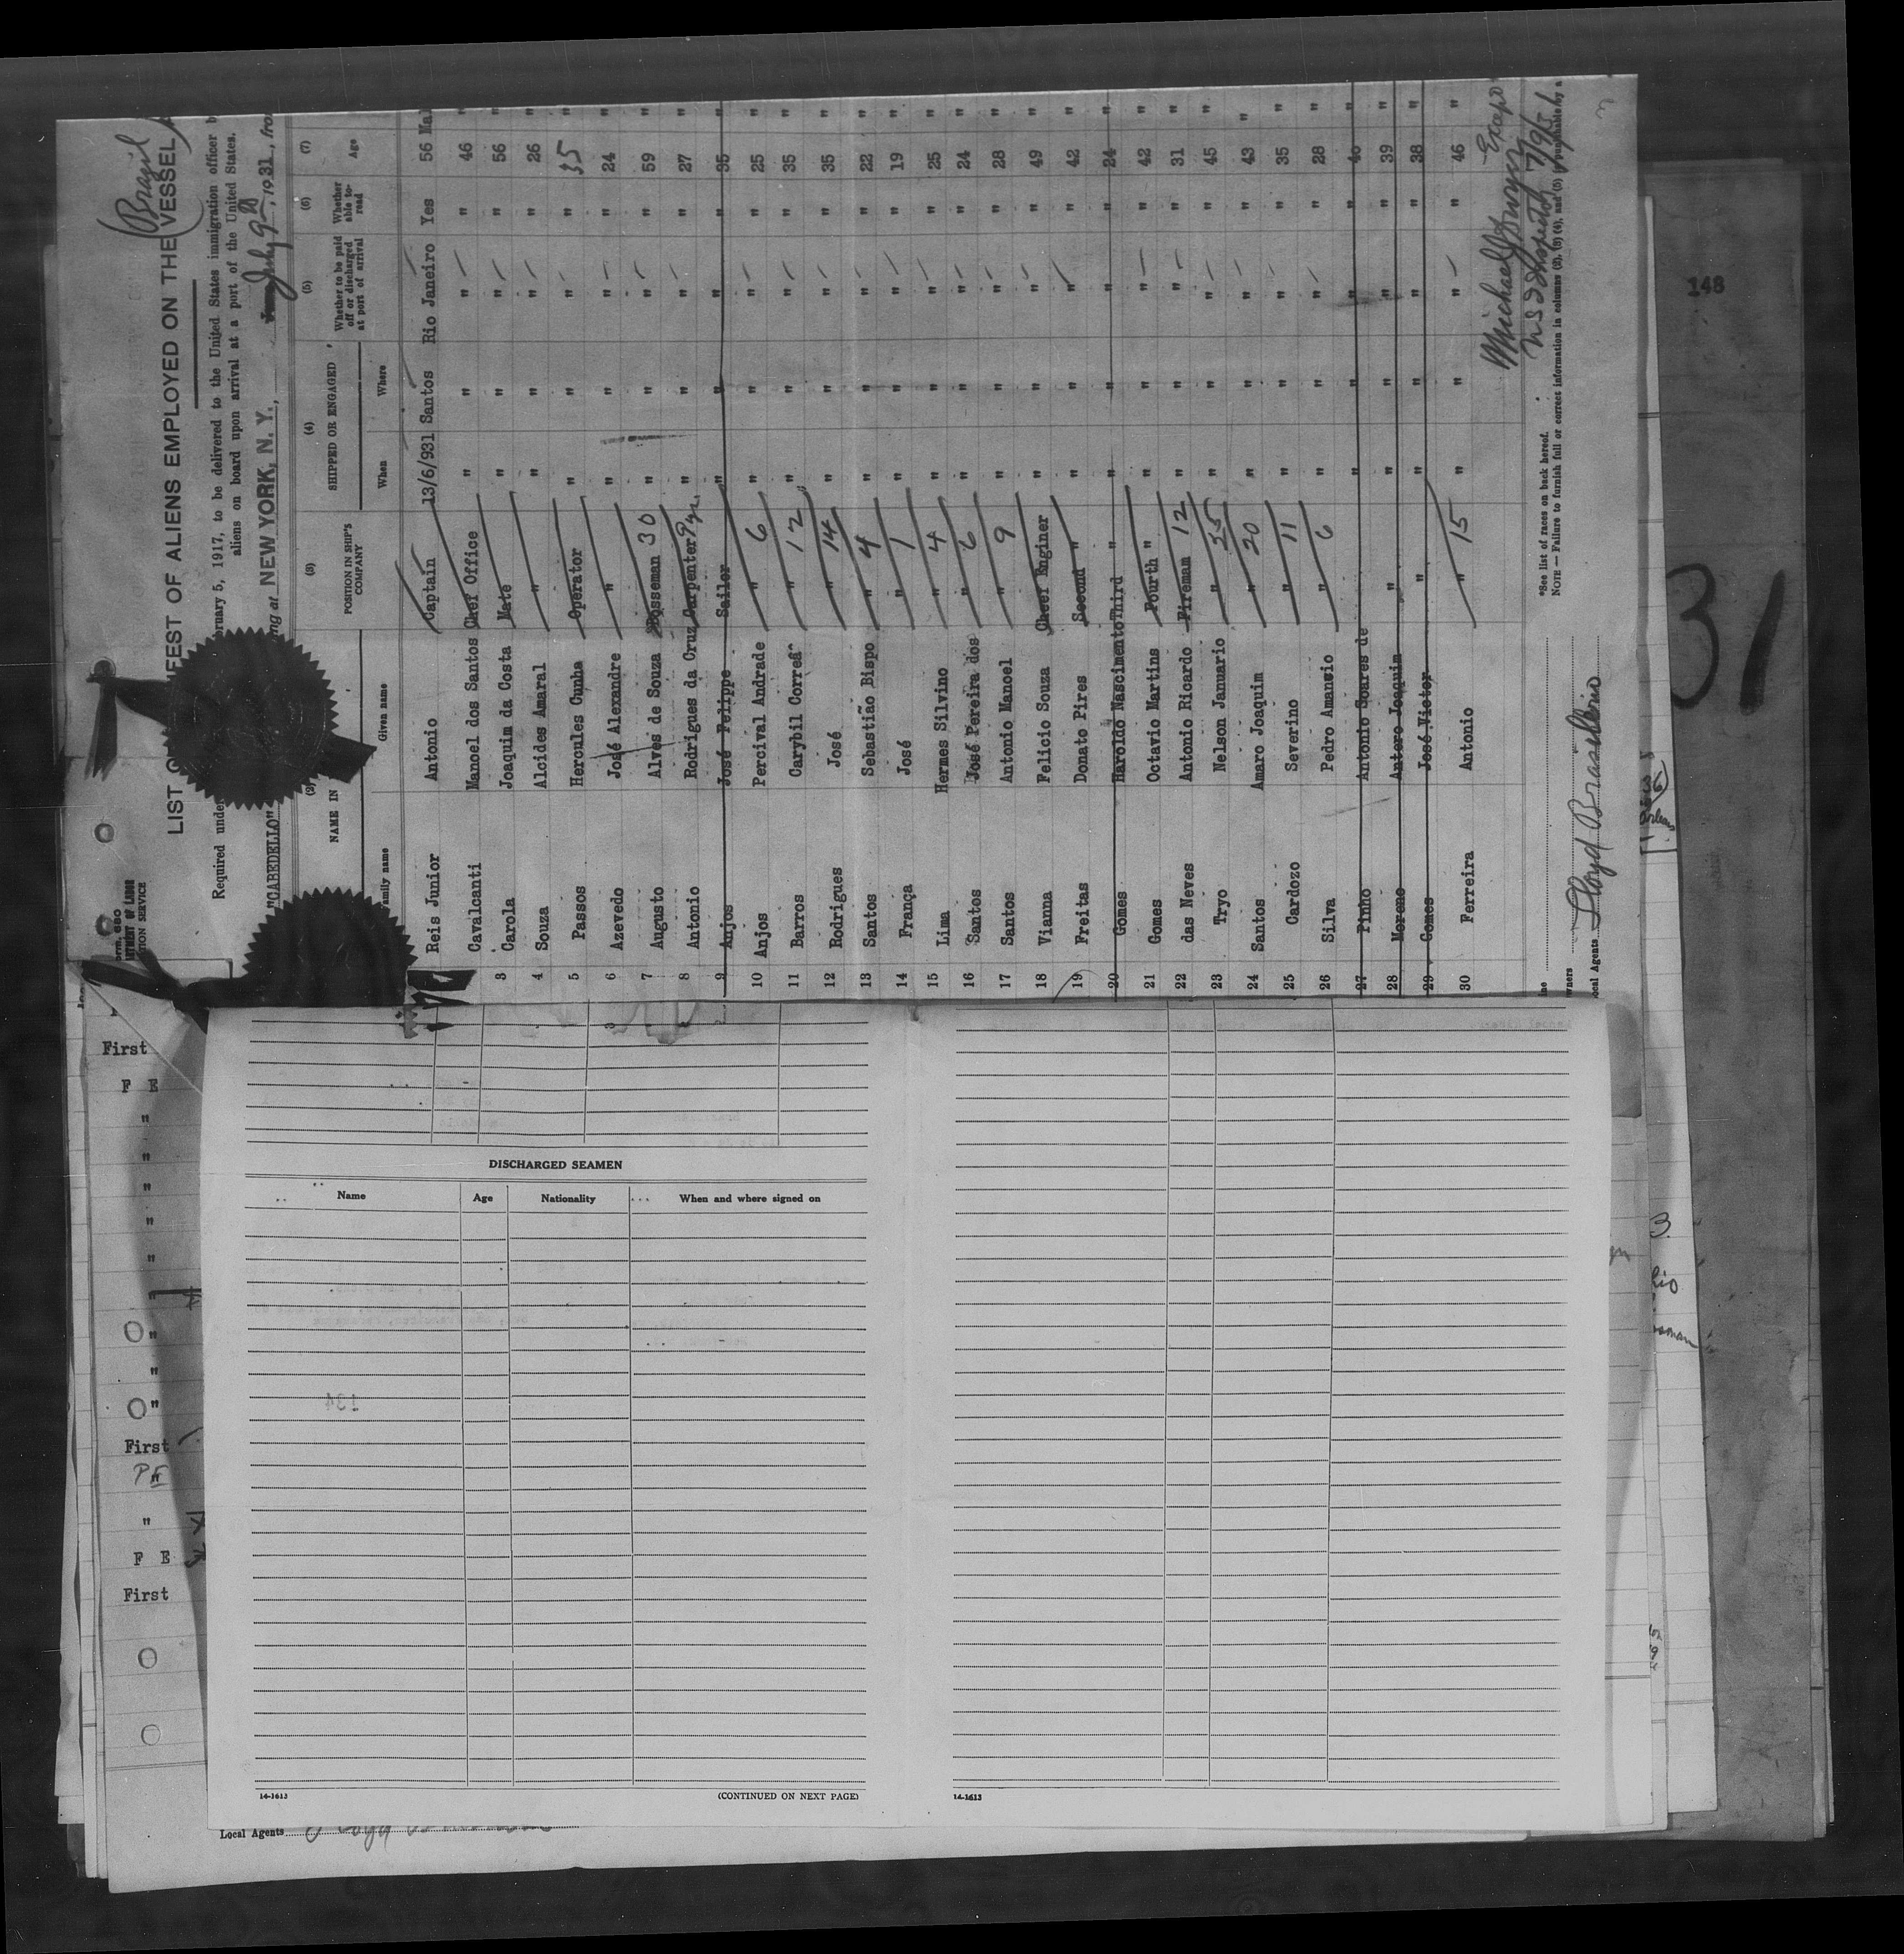 Brazil
LIST OF ALIENS EMPLOYED ON THE VESSEL
Required under
bruary 5, 1917, to be delivered to the United States immigration officer b
aliens on board upon arrival at a port of the United States.
"CABEDELLO"
ng at NEW YORK, N. Y., July 9th, 1931, fro
(2) (3) (4) (5) (6) (7)
NAME IN
POSITION IN SHIP'S COMPANY
SHIPPED OR ENGAGED
Whether to be paid off or discharged at port of arrival
Whether able to read
Age
amily name Given name When Where
Reis Junior Antonio Captain 13/6/931 Santos Rio Janeiro Yes 56 Mal
Cavalcanti Manoel dos Santos Chef Office " " " " 46 "
3 Carola Joaquim da Costa Mate " " " " 56 "
4 Souza Alcides Amaral " " " " " 26 "
5 Passos Hercules Cunha Operator " " " " 35 "
6 Azevedo José Alexandre " " " " " 24 "
7 Augusto Alves de Souza Bosseman 30 " " " " 59 "
8 Antonio Rodrigues da Cruz Carpenter " " " " 27 "
9 Anjos José Felippe Sailor " " " " 35 "
10 Anjos Percival Andrade " 6 " " " " 25 "
11 Barros Carybil Correâ " 12 " " " " 35 "
12 Rodrigues José " 14 " " " " 35 "
13 Santos Sebastião Bispo " 4 " " " " 22 "
14 França José " 1 " " " " 19 "
15 Lima Hermes Silvino " 4 " " " " 25 "
16 Santos José Pereira dos " 6 " " " " 24 "
17 Santos Antonio Manoel " 9 " " " " 28 "
18 Vianna Felicio Souza Cheer Enginer " " " " 49 "
19 Freitas Donato Pires Second " " " " " 42 "
20 Gomes Haroldo Nascimento Third " " " " " 24 "
21 Gomes Octavio Martins Fourth " " " " " 42 "
22 das Neves Antonio Ricardo Firemam 12 " " " " 31 "
23 Tryo Nelson Januario " 35 " " " " 45 "
24 Santos Amaro Joaquim " 20 " " " " 43 "
25 Cardozo Severino " 11 " " " " 35 "
26 Silva Pedro Amansio " 6 " " " " 28 "
27 Pinho Antonio Soares de " " " " 40 "
28 Moreno Antero Joaquim " " " " " 39 "
29 Gomes José Victor " " " " " 38 "
30 Ferreira Antonio " 15 " " " " 46 "
*See list of races on back hereof.
NOTE — Failure to furnish full or correct information in columns (2), (3) (4), and (5) is punishable by a
ine
wners
ocal Agents Lloyd Brasileiro
148
31
First
F E
"
"
"
"
"
"
O "
"
O "
First
"
"
F E
First
O
O
DISCHARGED SEAMEN
Name Age Nationality When and where signed on
14-1613 (CONTINUED ON NEXT PAGE)
14-1613
Local Agents